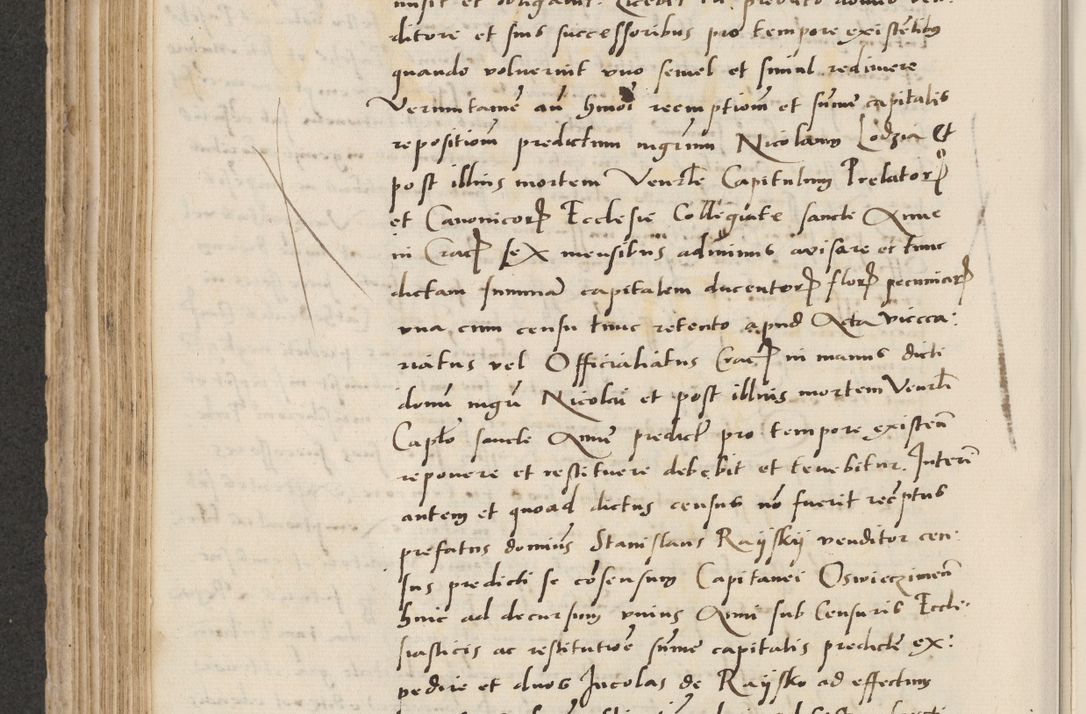 misit et obligavit. Licebit tn̄ prefato domino ven:
ditore et suis successoribus pro tempore existentibus
quando voluerint uno semel et simul redimere
Verumtamē an̄ hmōi reemptionem et sūme capitalis
repositionem predictum mgrum Nicolaum Lodzia et
post illius mortem Venrāle Capitulum Prelatorꝝ
et Canonicorꝝ Ecclesie Collegiate sancte Anne
in Cracꝝ sex mensibus adminus avisare et tunc
dictam summam capitalem ducentorꝝ florꝝ pecuniarꝝ
una cum censu tunc retento apud Acta vicecа:
riatus vel Officialiatus Cracꝝ in manus dicti
domī mgrī Nicolai et post illius mortem Venrāli
Caplō sancte Anne predictē pro tempore existeñ
reponere et restituere debebit et tenebitur. Interim
autem et quoad dictus census nō fuerit receptus
prefatus dominus Stanislaus Rayskij venditor cen:
sus predicti se cōsensum Capitanei Oswieczimeñ
huic ad decursum unius Anni sub Censuris Eccle:
siasticis ac restitutiōe sūme capitalis predicte ex:
pedire et duos Incolas de Raysko ad effectum